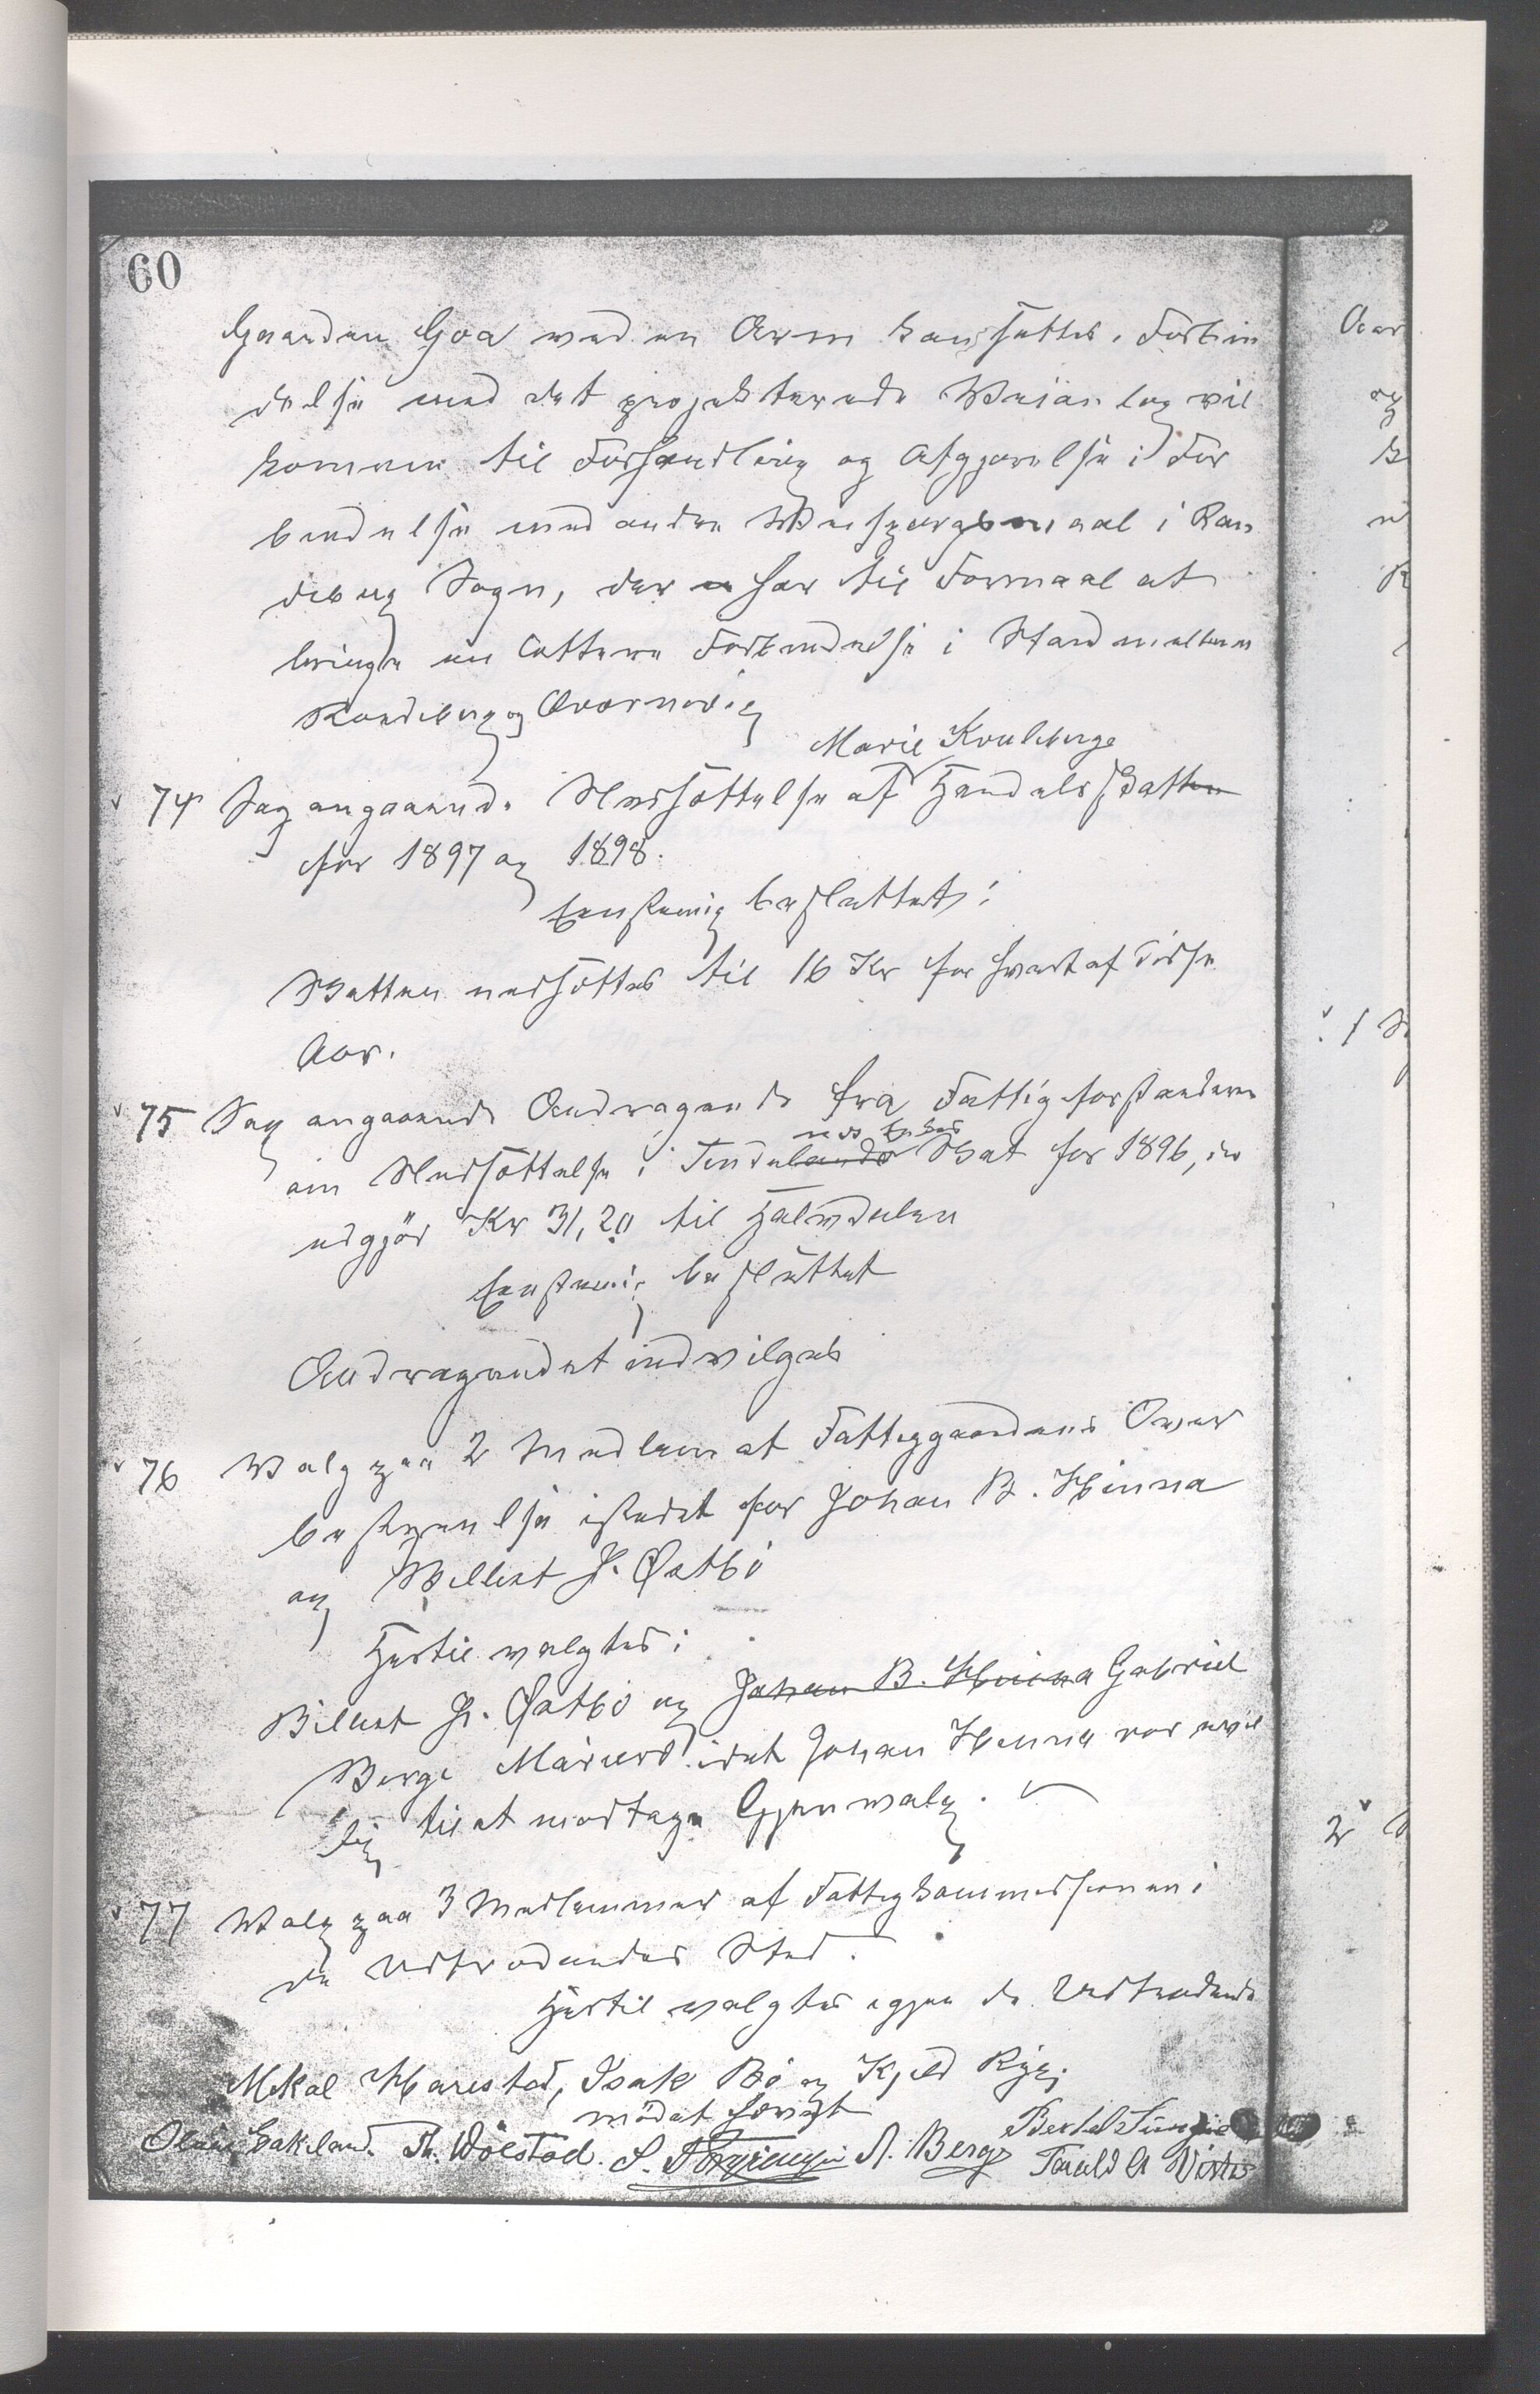 60
Gaarden Goa ved en Arm kan sættes i Forbin
delse med det projekterede Veianlæg vil
komme til Forhandling og Afgjørelse i For
bindelse med andre Veispørgsmaal i Ran
deberg Sogn, der har til Formaal at
bringe en lettere Forbindelse i Stand mellem
Randeberg og Qvernevig
Marie Kvaleberge
74 Sag angaaende Nedsættelse af Handelsskatten
for 1897 og 1898.
Enstemmig besluttet:
Skatten nedsættes til 16 Kr for hvert af disse
Aar.
75 Sag angaaende Andragende fra Fattigforstanderen
om Nedsættelse i Skat for 1896, der
udgjør Kr 31,20 til Halvdelen
Enstemmig besluttet
Andragendet indvilges
76 Valg paa 2 Medlem af Fattiggaardens Over
bestyrelse istedet for Johan B. Hinna
og Villert J. Østbö
Hertil valgtes:
Billert J. Østbö og Johan B. Hinna Gabriel
Berge idet Johan Hinna var uvil
lig til at modtage Gjenvalg.
77 Valg paa 3 Medlemmer af Fattigkommissionen i
de Udtrædendes Sted.
Hertil valgtes igjen de Udtrædende
Mikal Harestad, Isak Bö og Kjeld Ryg.
mödet hævet
Th. Wölstad. S. A. Berge Bertel